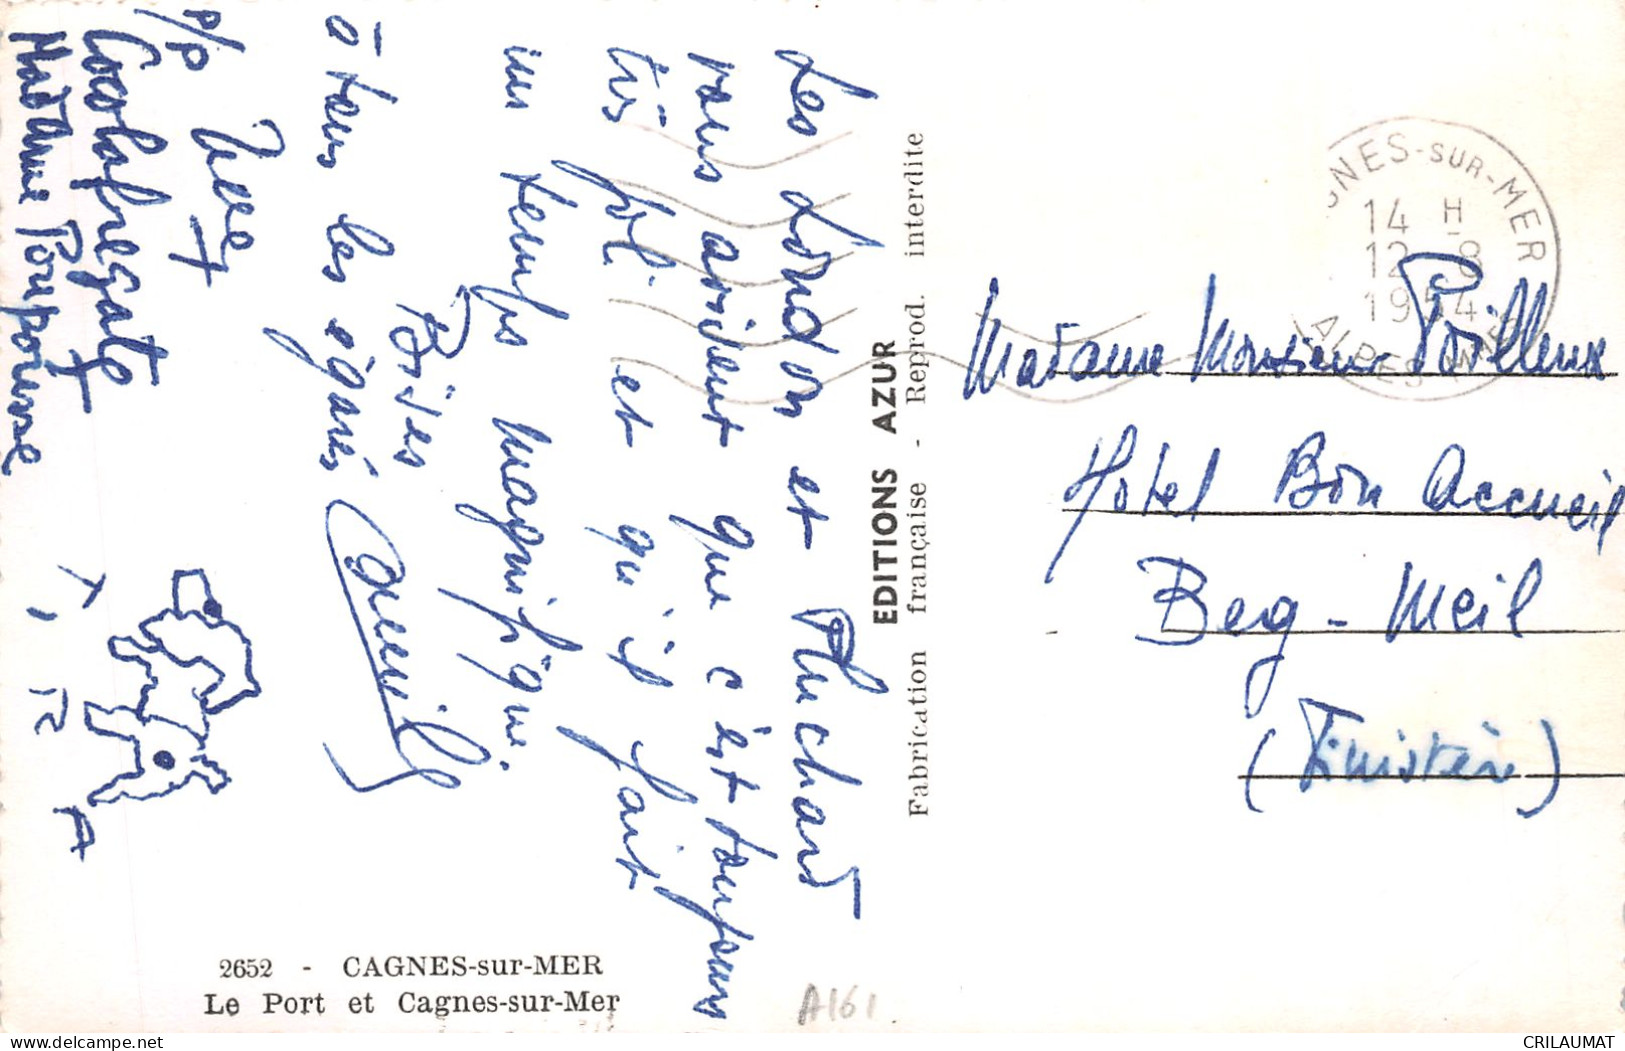 Les London et Pluchard
vous avisent que c'est toujours
très joli et qu'il fait
un temps magnifique.
Bises
à tous les égarés
p/p
Cocolafregate
Madame Poupousse
T. I. R. A
EDITIONS AZUR
Fabrication française - Reprod. interdite
CAGNES-SUR-MER
14 H
12-8
1954
ALPES-MMES
Madame Monsieur Poilleux
Hôtel Bon Accueil
Beg-Meil
(Finistère)
2652 - CAGNES-sur-MER
Le Port et Cagnes-sur-Mer
A161
CRILAUMAT